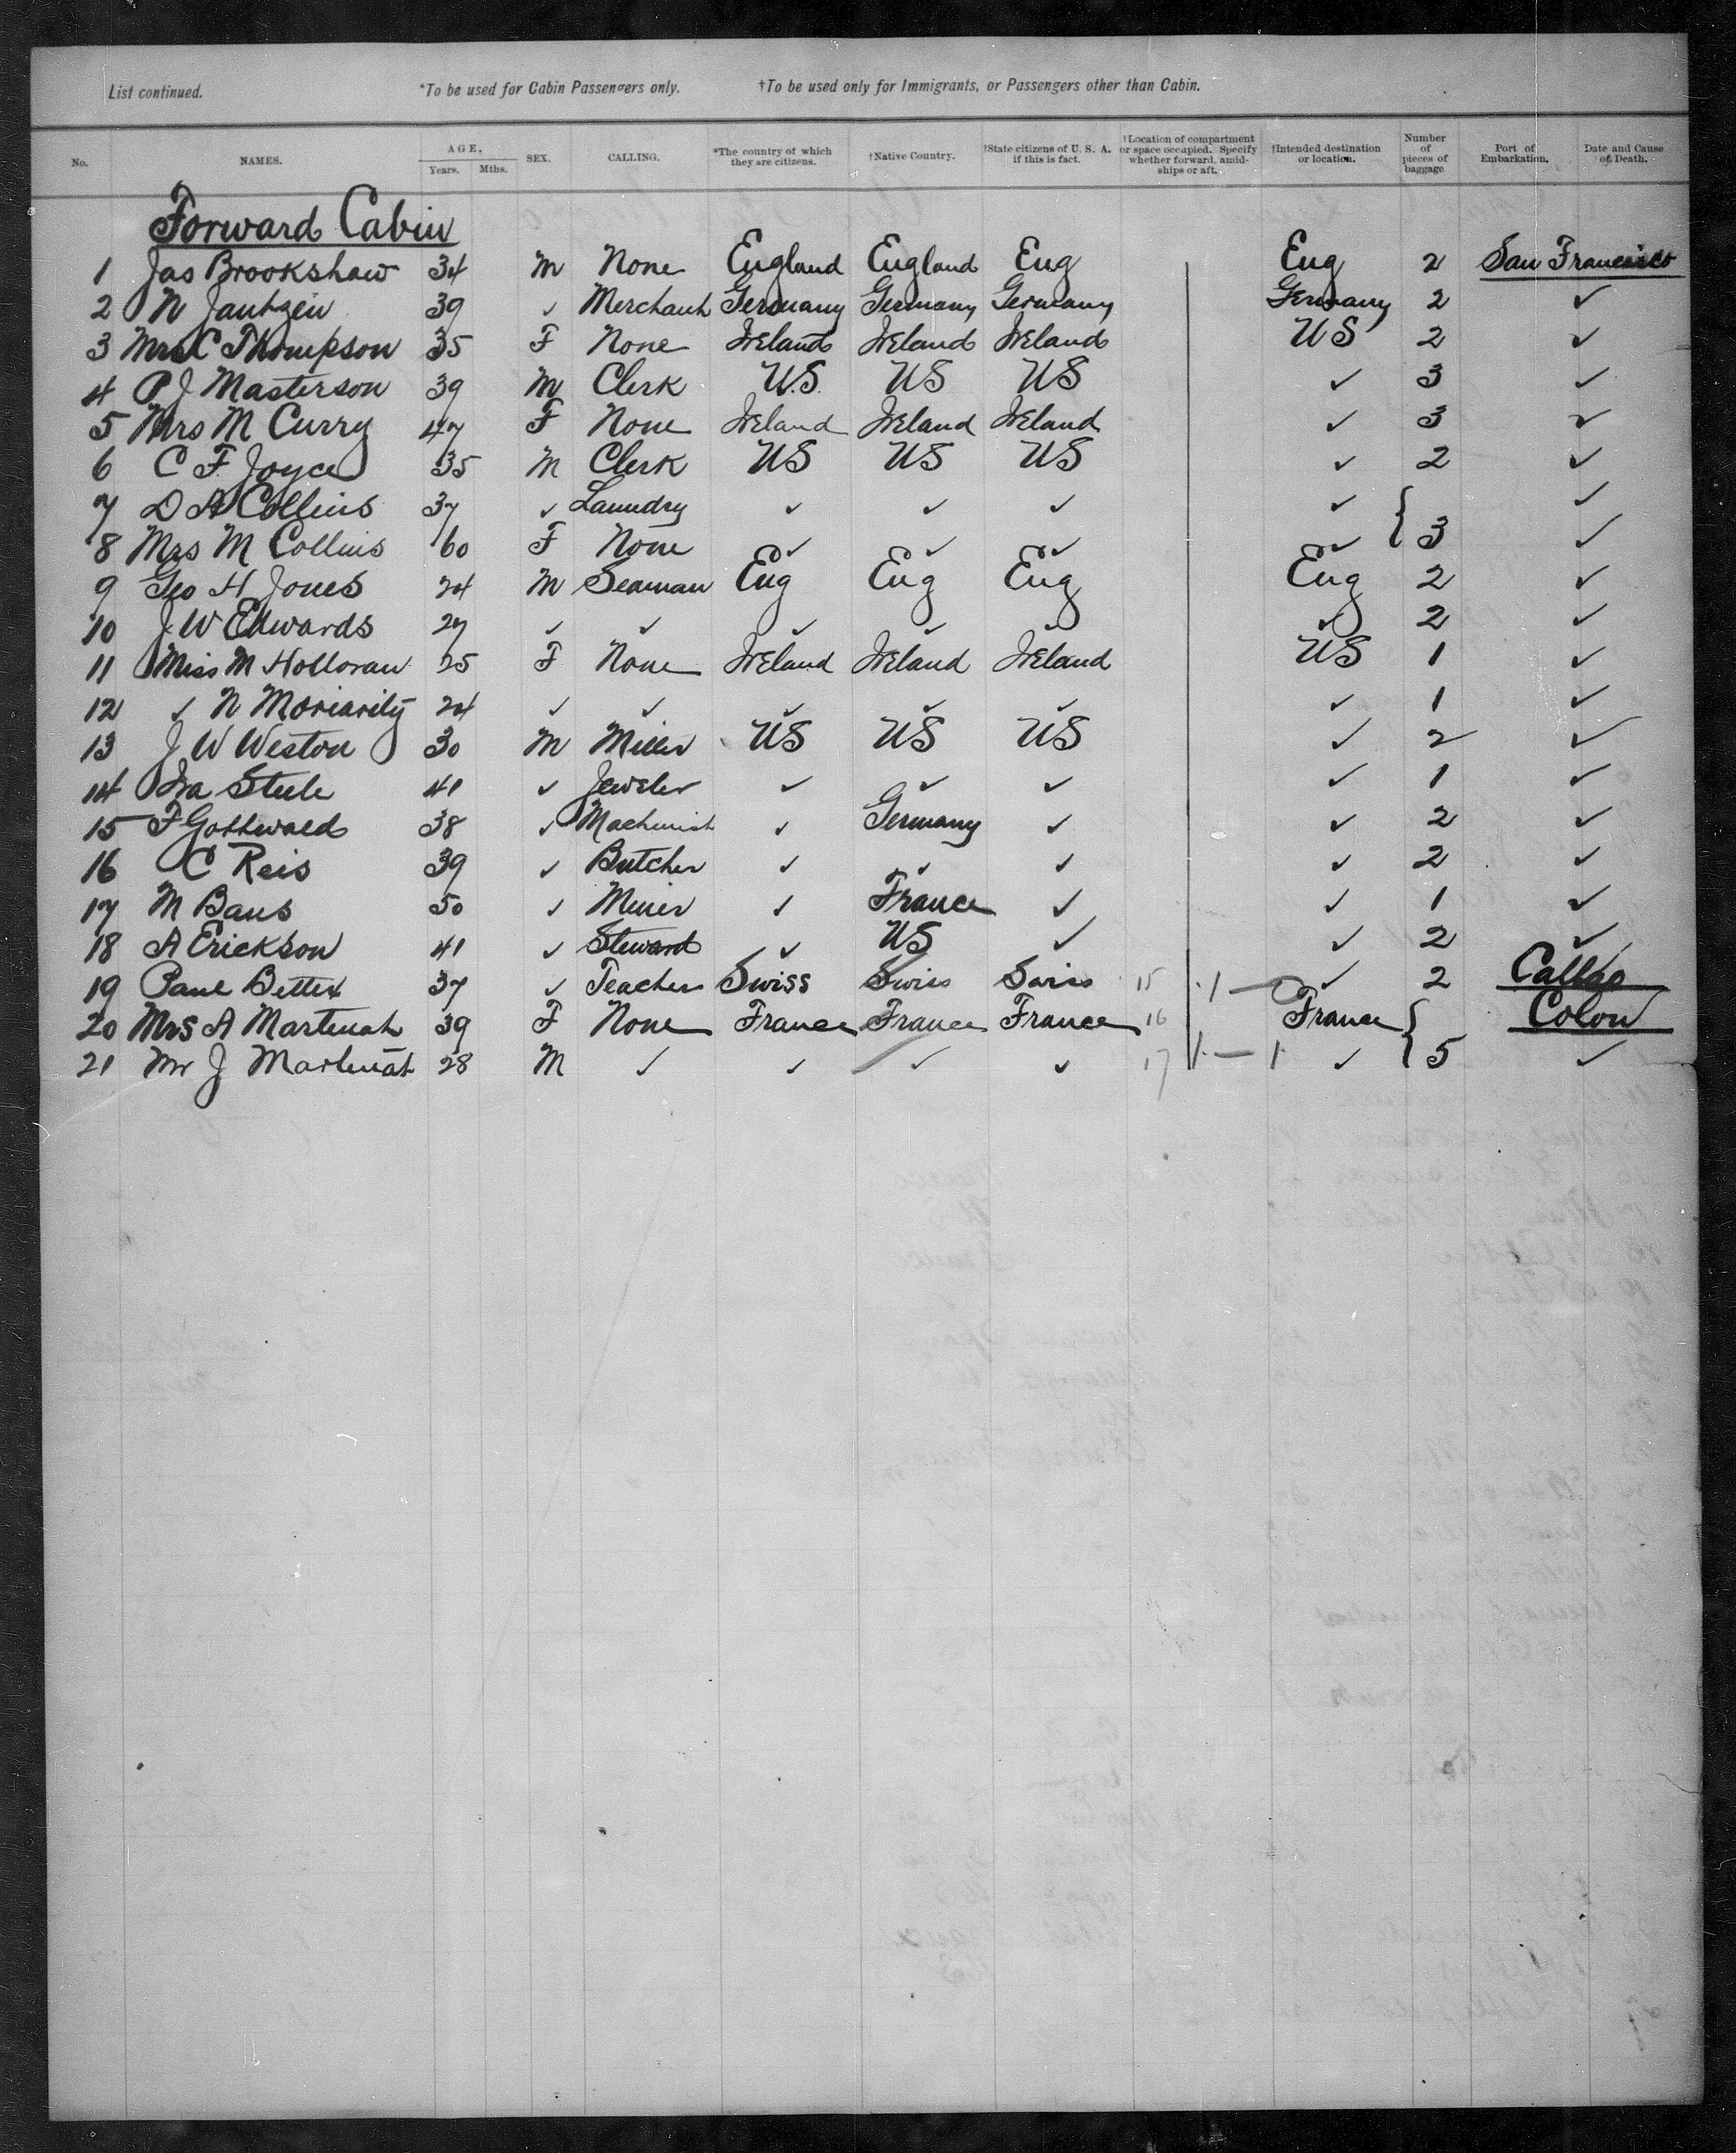 List continued. *To be used for Cabin Passengers only. †To be used only for Immigrants, or Passengers other than Cabin.
No. NAMES. AGE. Years. Mths. SEX. CALLING. *The country of which they are citizens. †Native Country. †State citizens of U. S. A. if this is fact. †Location of compartment or space occupied. Specify whether forward, amidships or aft. †Intended destination or location. Number of pieces of baggage Port of Embarkation. Date and Cause of Death.
Forward Cabin
1 Jas Brookshaw 34 M None England England Eug Eug 2 San Francisco
2 N Jantzen 39 ✓ Merchant Germany Germany Germany Germany 2 ✓
3 Mrs C Thompson 35 F None Ireland Ireland Ireland US 2 ✓
4 P J Masterson 39 M Clerk U.S. US US ✓ 3 ✓
5 Mrs M Curry 47 F None Ireland Ireland Ireland ✓ 3 ✓
6 C F Joyce 35 M Clerk US US US ✓ 2 ✓
7 D A Collins 37 ✓ Laundry ✓ ✓ ✓ ✓ { ✓
8 Mrs M Collins 60 F None ✓ ✓ ✓ ✓ 3 ✓
9 Geo H Jones 24 M Seaman Eng Eng Eng Eng 2 ✓
10 J W Edwards 27 ✓ ✓ ✓ ✓ ✓ ✓ 2 ✓
11 Miss M Holloran 25 F None Ireland Ireland Ireland US 1 ✓
12 ✓ N Moriarity 24 ✓ ✓ ✓ ✓ ✓ ✓ 1 ✓
13 J W Weston 30 M Miller US US US ✓ 2 ✓
14 Ira Steele 41 ✓ Jeweler ✓ ✓ ✓ ✓ 1 ✓
15 F Gottwald 38 ✓ Machinist ✓ Germany ✓ ✓ 2 ✓
16 C Reis 39 ✓ Butcher ✓ ✓ ✓ ✓ 2 ✓
17 M Baus 50 ✓ Miner ✓ France ✓ ✓ 1 ✓
18 A Erickson 41 ✓ Steward ✓ US ✓ ✓ 2 ✓
19 Paul Bettex 37 ✓ Teacher Swiss Swiss Swiss 15 ✓ 2 Callao
20 Mrs A Martenat 39 F None France France France 16 France { Colon
21 Mr J Martenat 28 M ✓ ✓ ✓ ✓ 17 ✓ 5 ✓